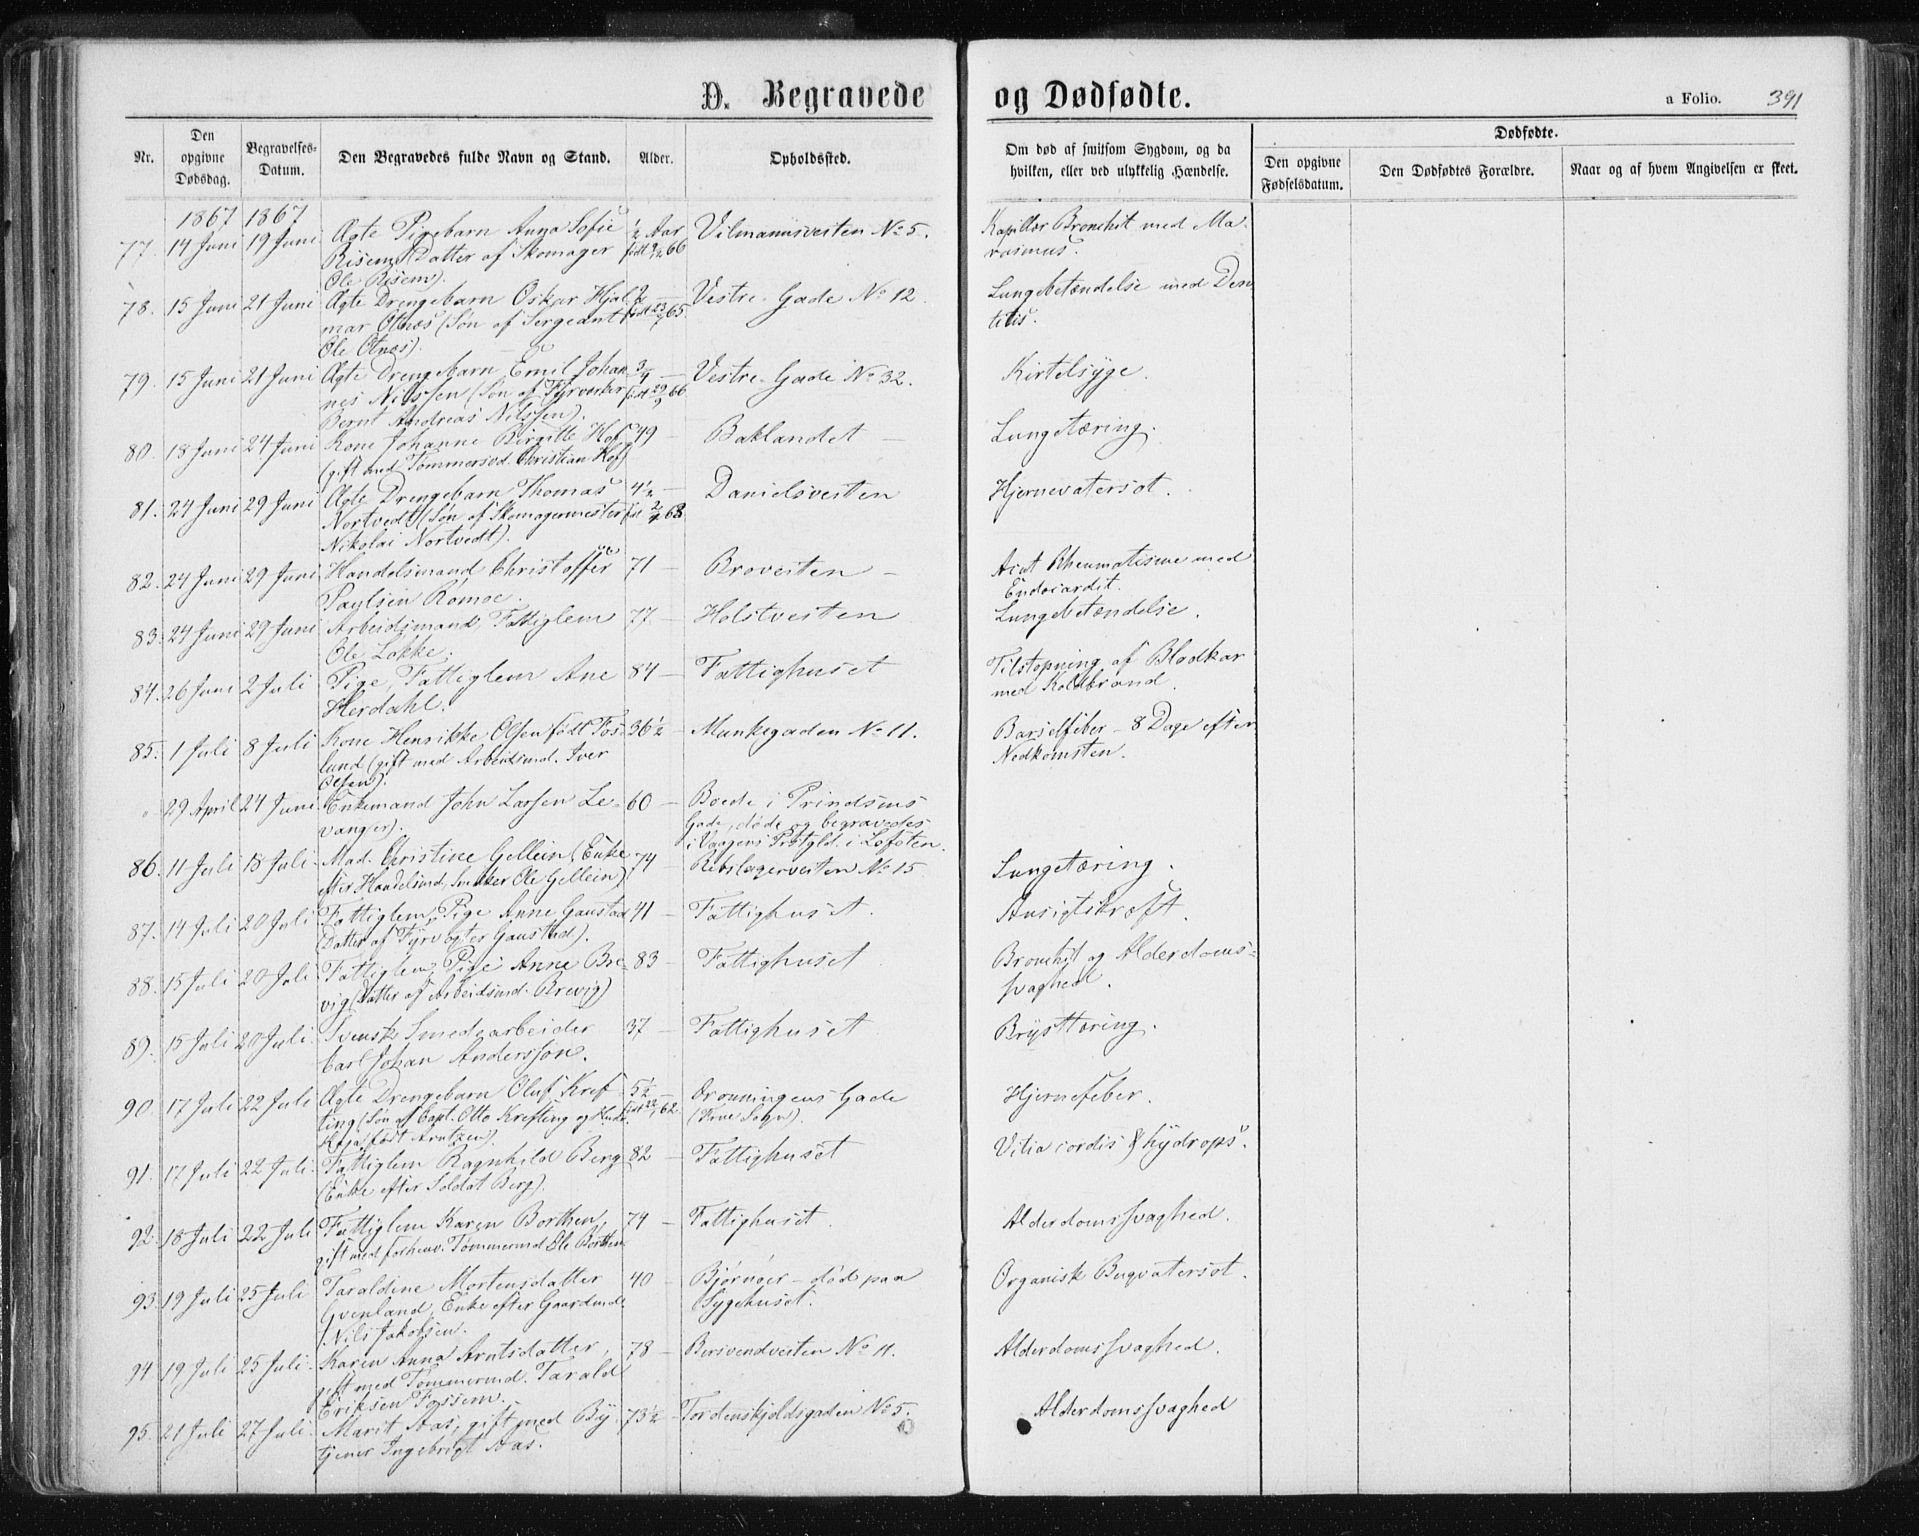 D. Begravede og Dødfødte.
a Folio. 391
Nr.
Den opgivne Dødsdag.
Begravelses-Datum.
Den Begravedes fulde Navn og Stand.
Alder.
Opholdssted.
Om død af smitsom Sygdom, og da hvilken, eller ved ulykkelig Hændelse.
Dødfødte.
Den opgivne Fødselsdatum.
Den Dødfødtes Forældre.
Naar og af hvem Angivelsen er skeet.
1867 1867
77. 14 Juni 19 Juni Ægte Pigebarn Anna Sofie ½ Aar Vilmannsveiten No 5. Kapillær Bronchit med Ma-
Risem (Datter af Skomager født 66 rasmus.
Ole Risem).
78. 15 Juni 21 Juni Ægte Drengebarn Oskar Hjal- 2 — Vestre-Gade No 12. Lungebetændelse med Den-
mar Otnæs (Søn af Sergeant født 23/7 65. titis.
Ole Otnæs).
79. 15 Juni 21 Juni Ægte Drengebarn Emil Johan- ¾ — Vestre-Gade No 32. Kirtelsyge.
nes Nilssen (Søn af Fyrverker født 29/9 66
Bernt Andreas Nilssen).
80. 18 Juni 24 Juni Kone Johanne Birgitte Hof 49 — Baklandet — Lungetæring.
(gift med Tømmersvd. Christian Hof)
81. 24 Juni 29 Juni Ægte Drengebarn Thomas 4½ — Danielsveiten Hjernevatersot.
Nortvedt (Søn af Skomagermester
Nikolai Nortvedt).
82. 24 Juni 29 Juni Handelsmand Christoffer 71 — Broveiten — Acut Rheumatisme med
Paulsen Romoe. Endocardit.
83. 24 Juni 29 Juni Arbeidsmand, Fattiglem 77 — Holstveiten Lungebetændelse.
Ole Løkke.
84. 26 Juni 2 Juli Pige, Fattiglem Ane 84 — Fattighuset Tilstopning af Blodkar
Herdahl. med Koldbrand.
85. 1 Juli 8 Juli Kone Henrikke Olsen født Fos- 36½ — Munkegaden No 11. Barselfeber — 8 Dage efter
lund (gift med Arbeidsmd. Iver Nedkomsten.
Olsen).
29 April 24 Juni Enkemand John Larsen Le- 60 — Boede i Prindsens
vanger). Gade, døde og begravedes
i Vaagens Præstgld. i Lofoten.
86. 11 Juli 18 Juli Mad. Christine Gellein (Enke 74 — Rebslagerveiten No 15 Lungetæring.
efter Handelsmd, Snedker Ole Gellein)
87. 14 Juli 20 Juli Fattiglem, Pige Anne Gaustad 41 — Fattighuset. Ansigtskræft.
(Datter af Fyrvogter Gaustad).
88. 15 Juli 20 Juli Fattiglem, Pige Anne Bre- 83 — Fattighuset Bronchit og Alderdoms-
vig (Datter af Arbeidsmd. Brevig) svaghed.
89. 15 Juli 20 Juli Svensk Smedearbeider 37 — Fattighuset Brysttæring.
Carl Johan Andersson.
90 17 Juli 22 Juli Ægte Drengebarn Oluf Kref- 5½ — Dronningens Gade Hjernefeber.
ting (Søn af Capt. Otto Krefting og Hustru (Frue Sogn).
født Arntzen).
91. 17 Juli 22 Juli Fattiglem Ragnhild Berg 82 — Fattighuset Vitia cordis & hydrops.
(Enke efter Soldat Berg).
92. 18 Juli 22 Juli Fattiglem Karen Borthen, 74 — Fattighuset. Alderdomssvaghed.
gift med forhenv. Tømmermd Ole Borthen.
93. 19 Juli 25 Juli Taraldine Mortensdatter 40 — Bjørnør — død paa Organisk Bugvatersot.
Qvenland, Enke efter Gaardmd. Sygehuset.
Nils Jakobsen.
94 19 Juli 25 Juli Karen Anna Arntsdatter, 78 — Bersvendveiten No 11. Alderdomssvaghed.
gift med Tømmermd. Tarald
Eriksen Fossem.
95. 21 Juli 27 Juli Marit Aas, gift med By- 73½ — Tordenskjoldsgaden No 5. Alderdomssvaghed
tjener Ingebrigt Aas.